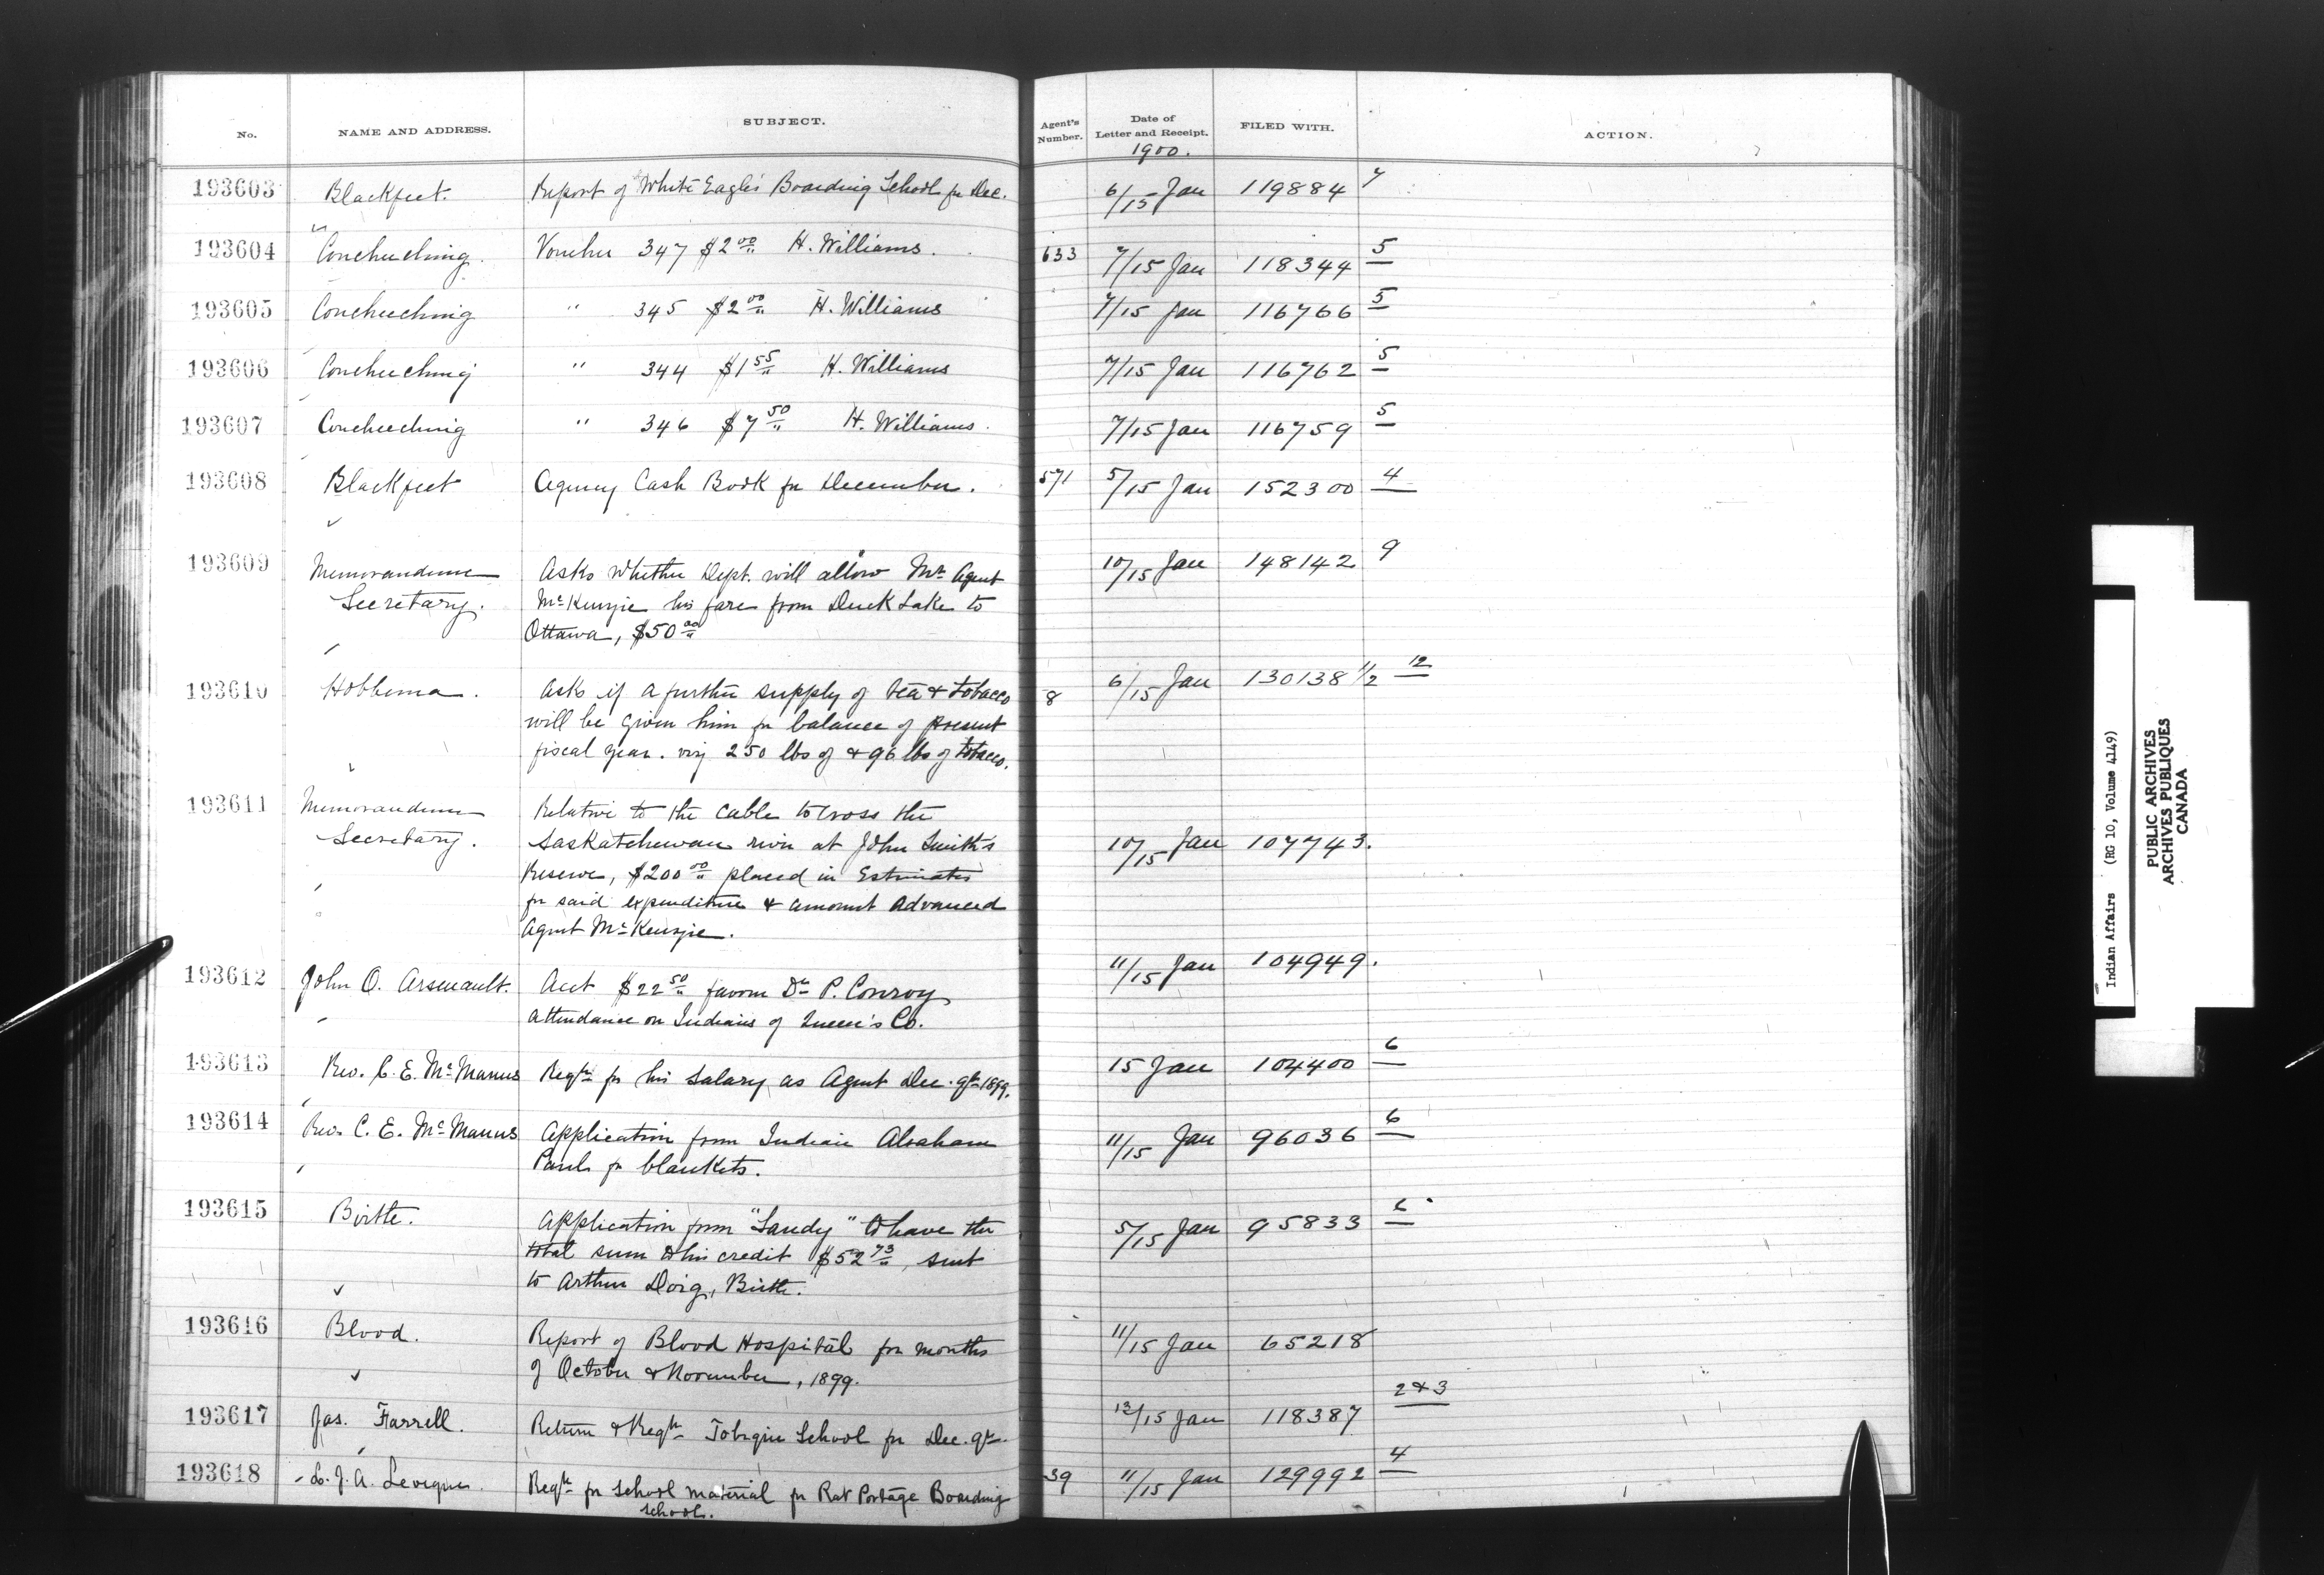 No. NAME AND ADDRESS. SUBJECT. Agent's Number. Date of Letter and Receipt. FILED WITH. ACTION.
1900.
193603 Blackfeet. Report of White Eagle's Boarding School for Dec. 6/15 Jan 119884 7
193604 Couchuching. Voucher 347 $2 00 H. Williams. 633 7/15 Jan 118344 5
193605 Couchuching " 345 $2 00 H. Williams 7/15 Jan 116766 5
193606 Couchuching " 344 $1 55 H. Williams 7/15 Jan 116762 5
193607 Couchuching " 346 $7 50 H. Williams. 7/15 Jan 116759 5
193608 Blackfeet Agency Cash Book for December. 571 5/15 Jan 152300 4
193609 Memorandum Asks whether Dept. will allow Mr. Agent 10/15 Jan 148142 9
Secretary. McKenzie his fare from Duck Lake to
Ottawa, $50 00
193610 Hobbema. Asks if a further supply of tea & tobacco 8 6/15 Jan 130138 1/2 12
will be given him for balance of present
fiscal year. viz 250 lbs of & 96 lbs of tobacco.
193611 Memorandum Relative to the cable to cross the
Secretary. Saskatchewan river at John Smith's 10/15 Jan 107743.
Reserve, $200 00 placed in Estimates
for said expenditure & amount advanced
Agent McKenzie.
193612 John O. Arsenault. Acct $22 50 favour Dr P. Conroy 11/15 Jan 104949.
attendance on Indians of Queen's Co.
193613 Rev. C. E. McManus Reqn for his salary as Agent Dec. qr 1899. 15 Jan 104400 6
193614 Rev. C. E. McManus Application from Indian Abraham 11/15 Jan 96036 6
Paul for blankets.
193615 Birtle. Application from "Sandy" to have the 5/15 Jan 95833 6
total sum to his credit $52 73, sent
to Arthur Doig, Birtle.
193616 Blood. Report of Blood Hospital for months 11/15 Jan 65218
of October & November, 1899.
193617 Jas. Farrell. Return & Reqn Tobique School for Dec. qr. 13/15 Jan 118387 2 & 3
193618 L. J. A. Leveque. Reqn for school material for Rat Portage Boarding 39 11/15 Jan 129992 4
school.
Indian Affairs (RG 10, Volume 4149)
PUBLIC ARCHIVES
ARCHIVES PUBLIQUES
CANADA